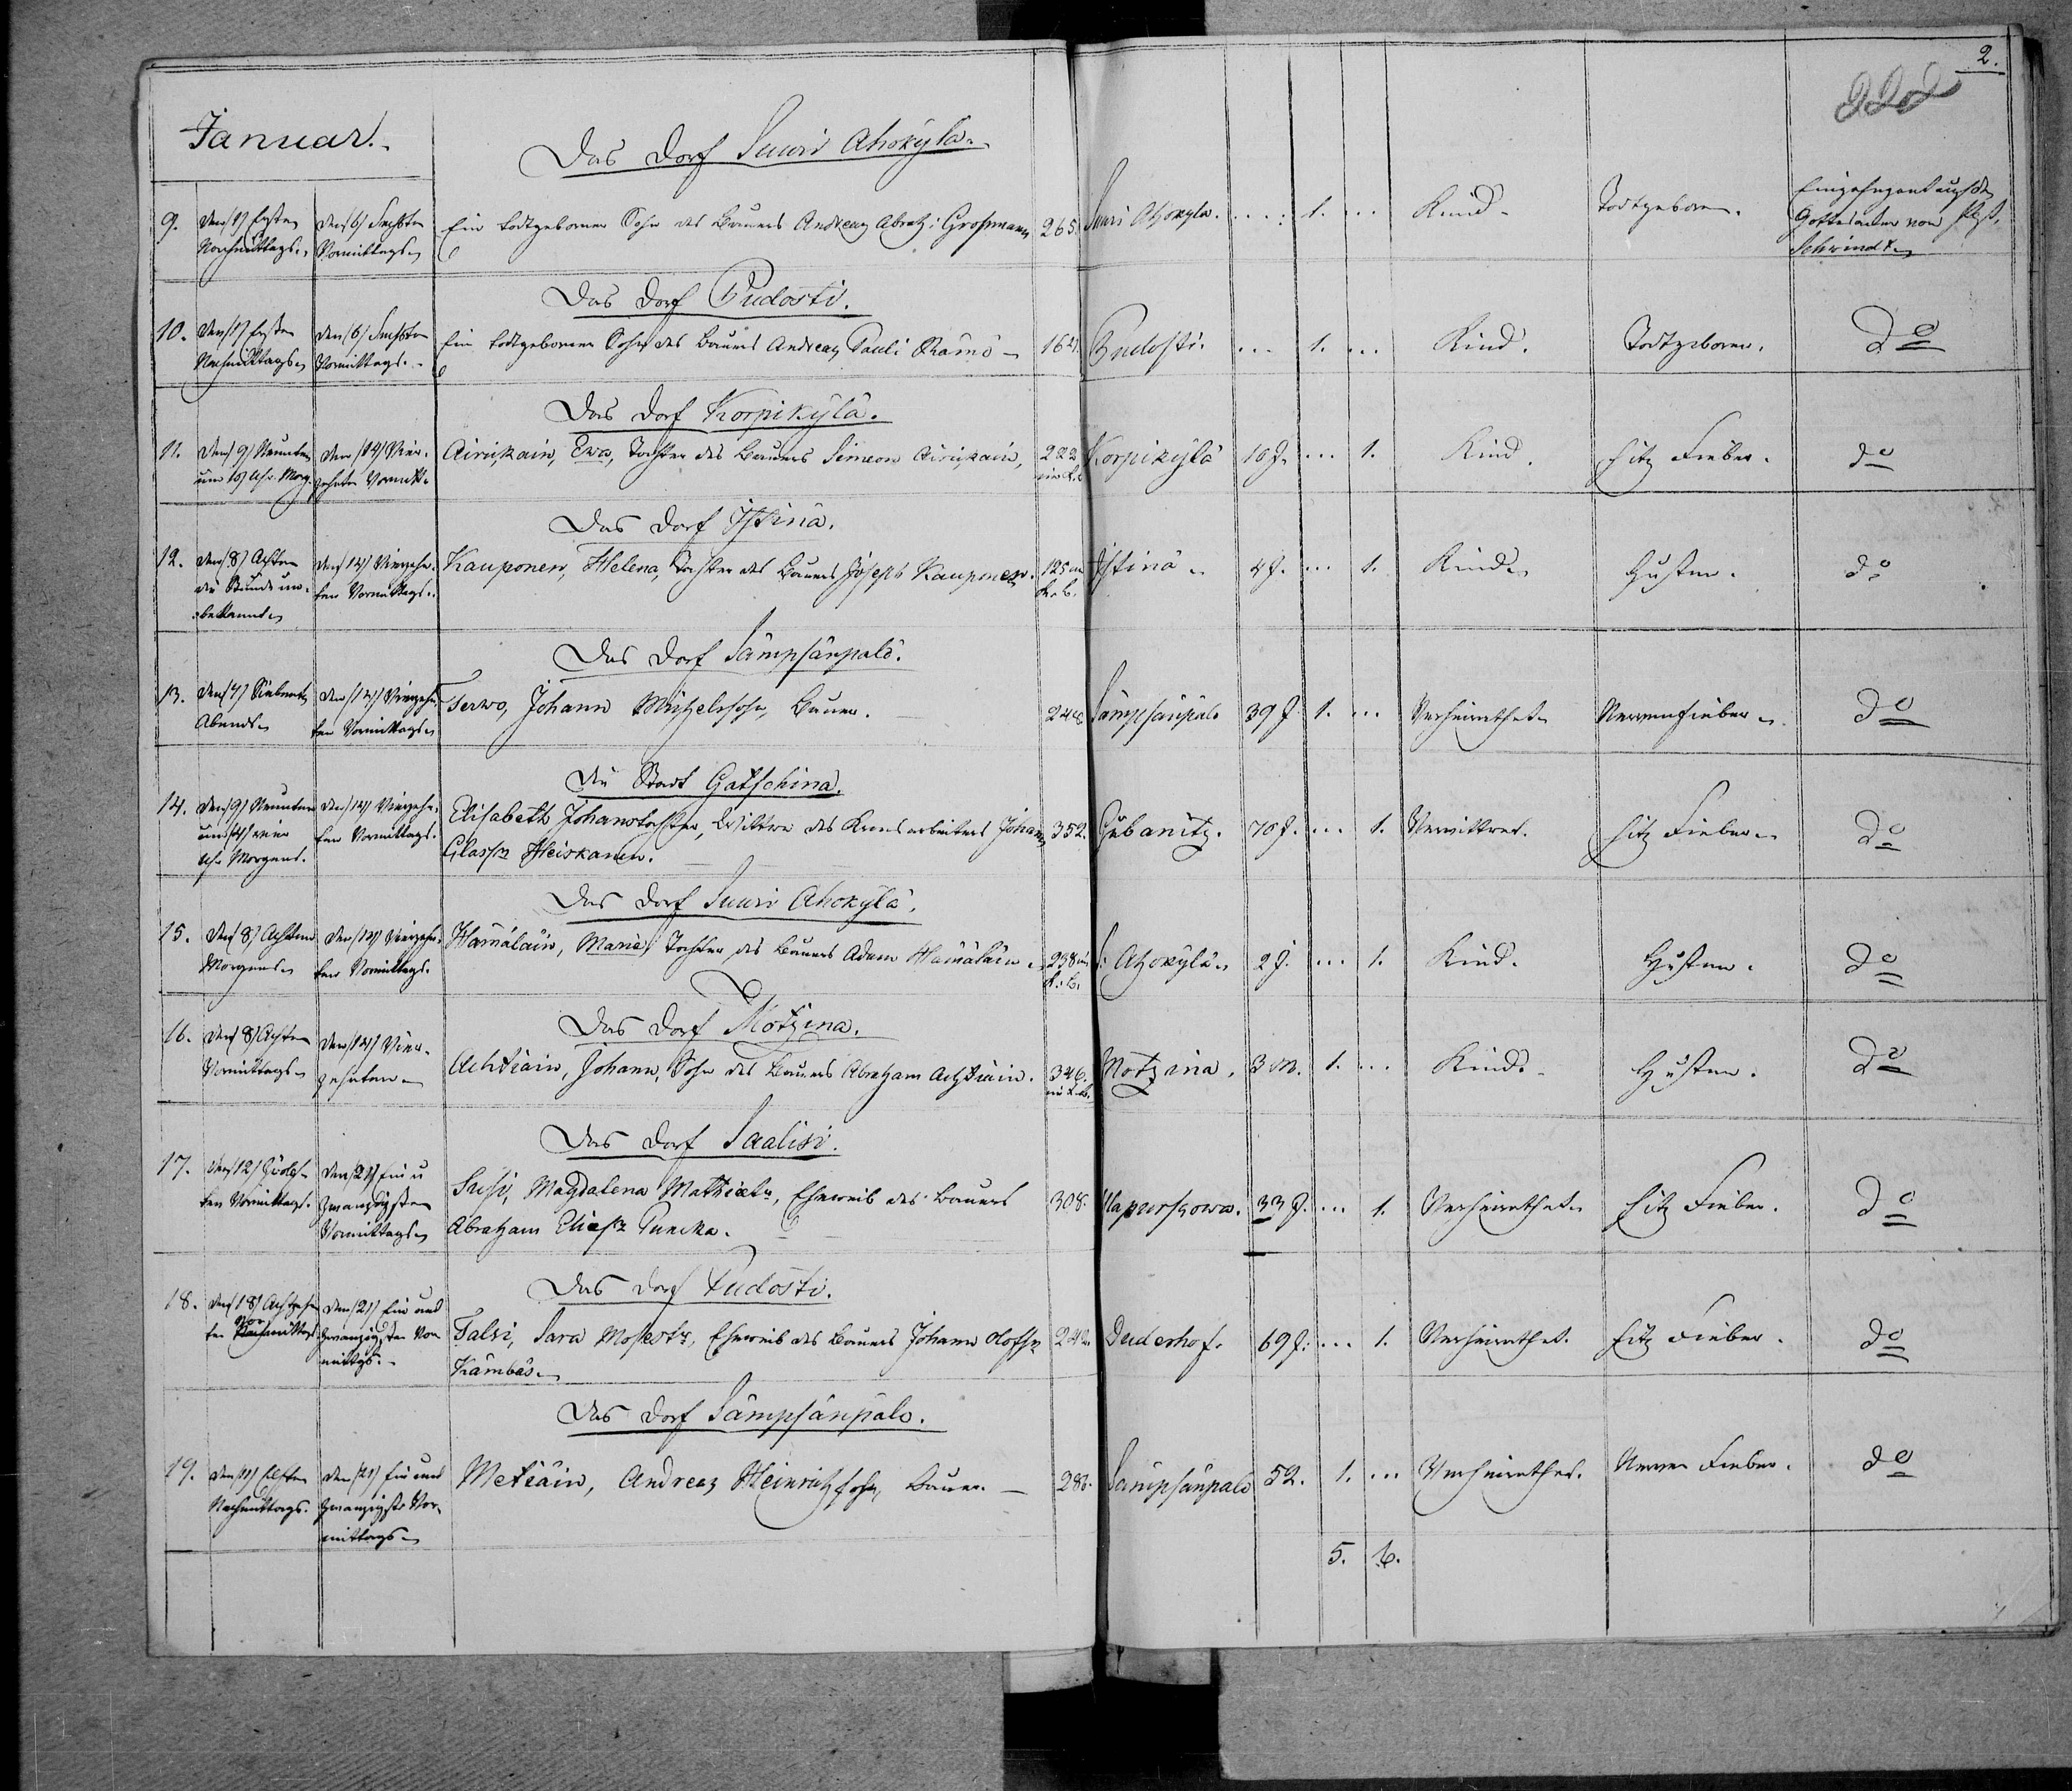 2.
222
Januar.
Das Dorf Suuri Ahokyla.
9. Den 1) Ersten Nachmittags. Den 6) Sechsten Vormittags Ein todtgeborner Sohn des Bauers Andreas Abrah: Großmann 265. Suuri Ahokyla. 1. Kind. Todtgeboren. Eingesegnet auf dem Gottesacker von Past. Schwindt.
Das Dorf Pudosti.
10. Den 1) Ersten Nachmittags Den (6) Sechsten Vormittags. Ein todtgeborner Sohn des Bauers Andreas Pauli Rämö Pudosti. 1. Kind. Todtgeboren. do
Das Dorf Korpikylä.
11. Den 9) Neunten um 10) Uhr Morg. Den (14) Vierzehnten Vormitt. Airikain, Ewa, Tochter des Bauers Simeon Airikain, 222 Korpikylä 10 J. 1. Kind. Hitz Fieber. do
Das Dorf Istinä.
12. Den 8) Achten die Stunde unbekannt Den (14) Vierzehnten Vormittags. Kauponen, Helena, Tochter des Bauers Joseph Kauponen. 125 Istinä 4 J. 1. Kind Husten. do
Das Dorf Sämpsänpalo.
13. Den 7) Siebenten Abends Den (14) Vierzehnten Vormittags Terwo, Johann Michelssohn, Bauer. Sämpsänpalo 39 J. 1. Verheirathet Nervenfieber do
Die Stadt Gatschina.
14. Den 9) Neunten um (4) vier Uhr Morgens. Den (14) Vierzehnten Vormittags. Elisabeth Johanstochter, Wittwe des Kronsarbeiters Johann
Heiskanen. 352. Gubanitz. 70 J. 1. Verwittwet. Hitz Fieber do
Das Dorf Suuri Ahokylä.
15. Den 8) Achten Morgens Den (14) Vierzehnten Vormittags. Hämäläin, Maria, Tochter des Bauers Adam Hämäläin 238 S: Ahokylä 2 J. 1. Kind. Husten. do
Das Dorf Motzina.
16. Den 8) Achten Vormittags Den (14) Vierzehnten Achtiäin, Johann, Sohn des Bauers Abraham Achtiäin. 346. Motzina. 3 M. 1. Kind. Husten. do
Das Dorf Saalisi.
17. Den 12) Zwölften Vormittags. Den (21) Ein u Zwanzigsten Vormittags Susi, Magdalena Mathiatr, Eheweib des Bauers
Abraham Eliasz Puncka. 308. Hapurskowa. 33 J. 1. Verheirathet Hitz Fieber. do
Das Dorf Pudosti.
18. Den 18) Achtzehnten Vormittags Den (21) Ein und Zwanzigsten Vormittgs. Talsi, Sara Mosestr, Eheweib des Bauers Johann Olofsn
Kämbäs. 242 Duderhof. 69 J. 1. Verheirathet. Hitz Fieber. do
Das Dorf Sämpsänpalo.
19. Den 11) Elften Nachmittags. Den (21) Ein und Zwanzigste Vormittags Metiäin, Andreas Heinrichssohn, Bauer. 286. Sämpsänpalo 52. 1. Verheirathet. Nerven Fieber. do
5. 6.